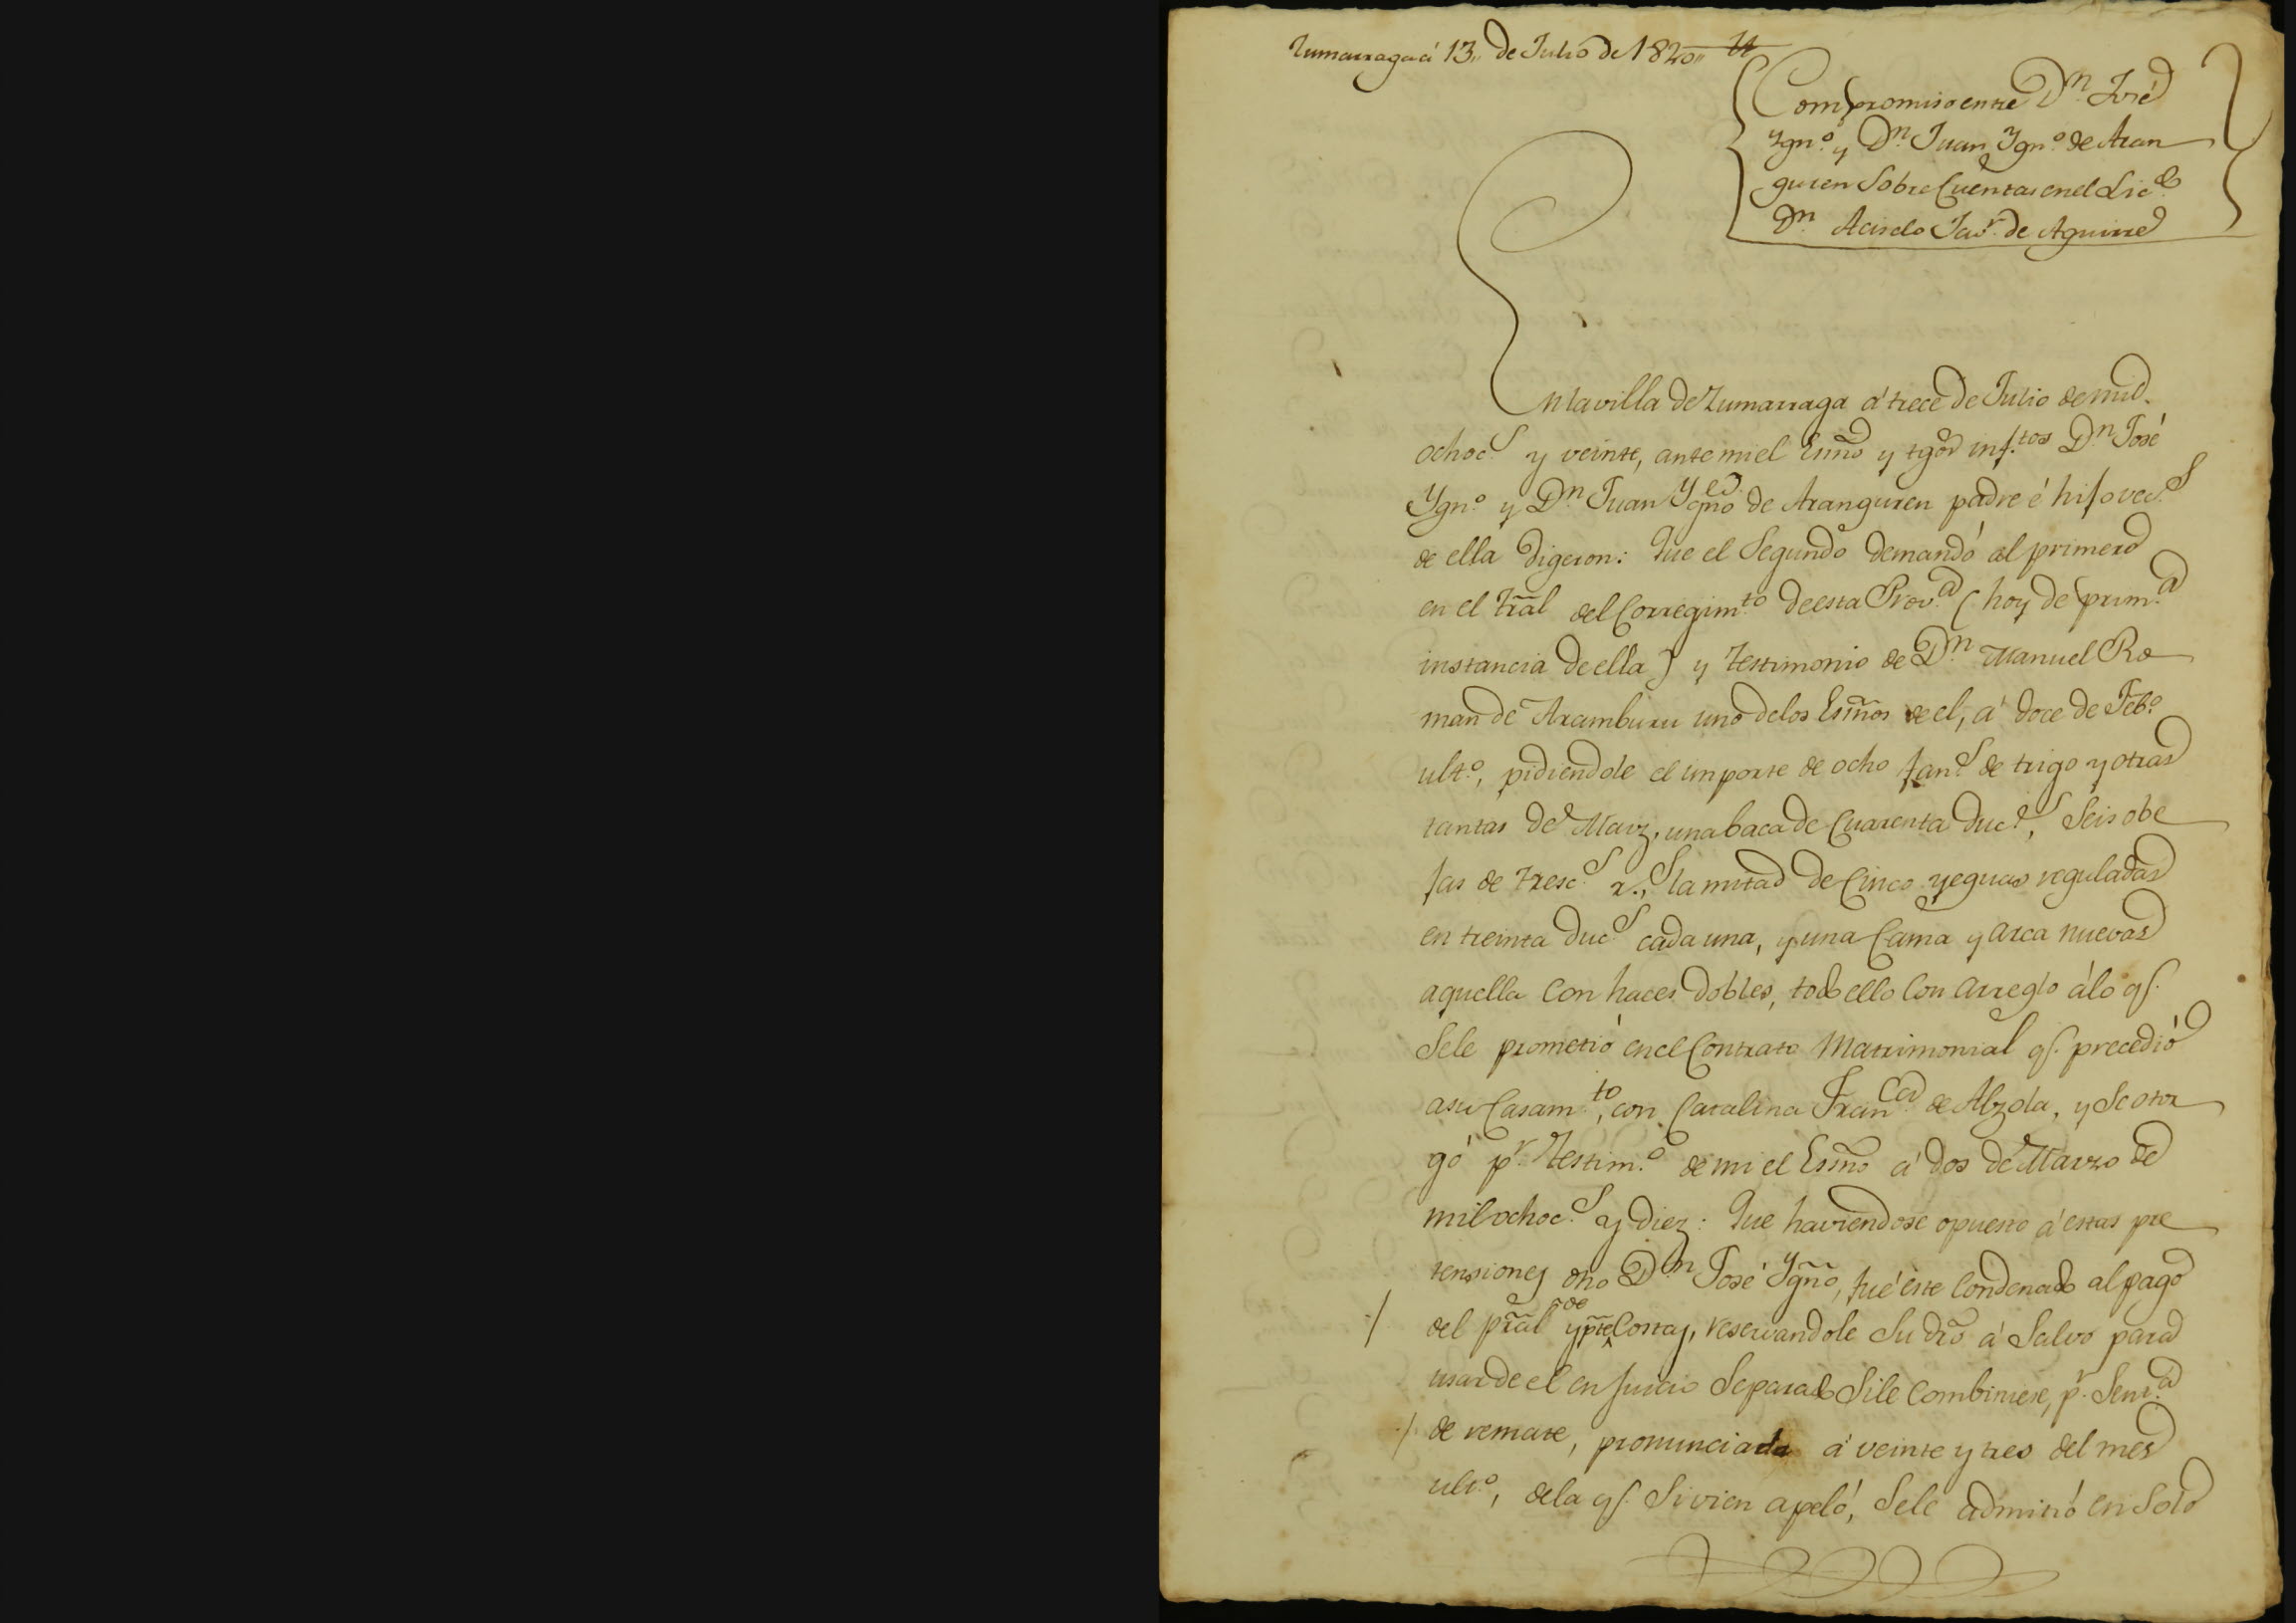 Zumarraga á 13,, de Julio de 1820,,
Compromiso entre Dn. José
Ygn.o y Dn. Juan Ygn.o de Aran
guren Sobre Cuentas en el Lic.do
Dn. Acisclo Jav.r de Aguirre
En la villa de Zumarraga á trece de Julio de mil
ochoc.s y veinte, ante mi el Esño y tgos inf.tos Dn. José
Ygn.o y Dn. Juan Ygño de Aranguren padre é hijo vec.s
de ella digeron: Que el Segundo demandó al primero
en el Trãl del Corregim.to de esta Prov.a (hoy de prim.a
instancia de ella) y testimonio de Dn. Manuel Ro
man de Aramburu uno de los Esños de el, á doce de Feb.o
ult.o, pidiendole el importe de ocho fan.s de trigo y otras
tantas de Maiz, una baca de Cuarenta duc.s, Seis obe
jas de tresc.s r.s, la mitad de Cinco yeguas reguladas
en treinta duc.s cada una, y una Cama y arca nuevas
aquella Con haces dobles, todo ello Con arreglo á lo q.
Se le prometió en el Contrato Matrimonial q. precedió
a su Casam.to, con Catalina Fran.ca de Alzola, y Se otor
gó p.r testim.o de mi el Esño á dos de Marzo de
mil ochoc.s y diez: Que haviendose opuesto á estas pre
tensiones dho Dn. José Ygño, fué este Condenado al pago
del prãl y pte de Costas, reservandole Su dro á Salvo para
usar de el en juicio Separado Si le Combiniese, p.r Sent.a
de remate, pronunciada á veinte y tres del mes
ult.o, de la q. Si vien apeló, Se le admitió en Solo